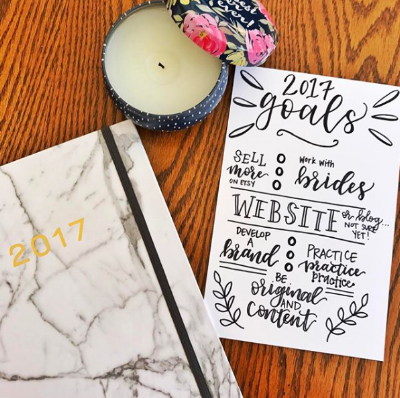 est
ever!
2017
2017
goals
SELL
more
ON ETSY
work with
brides
WEBSITE
or blog...
NOT SURE
YET!
DEVELOP
A
brand
PRACTICE
practice
PRACTICE
BE
original
AND
content